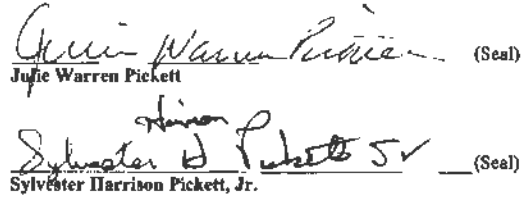 Julie Warren Pickett (Seal)
Julie Warren Pickett
Sylvester H Pickett Jr (Seal)
Sylvester Harrison Pickett, Jr.